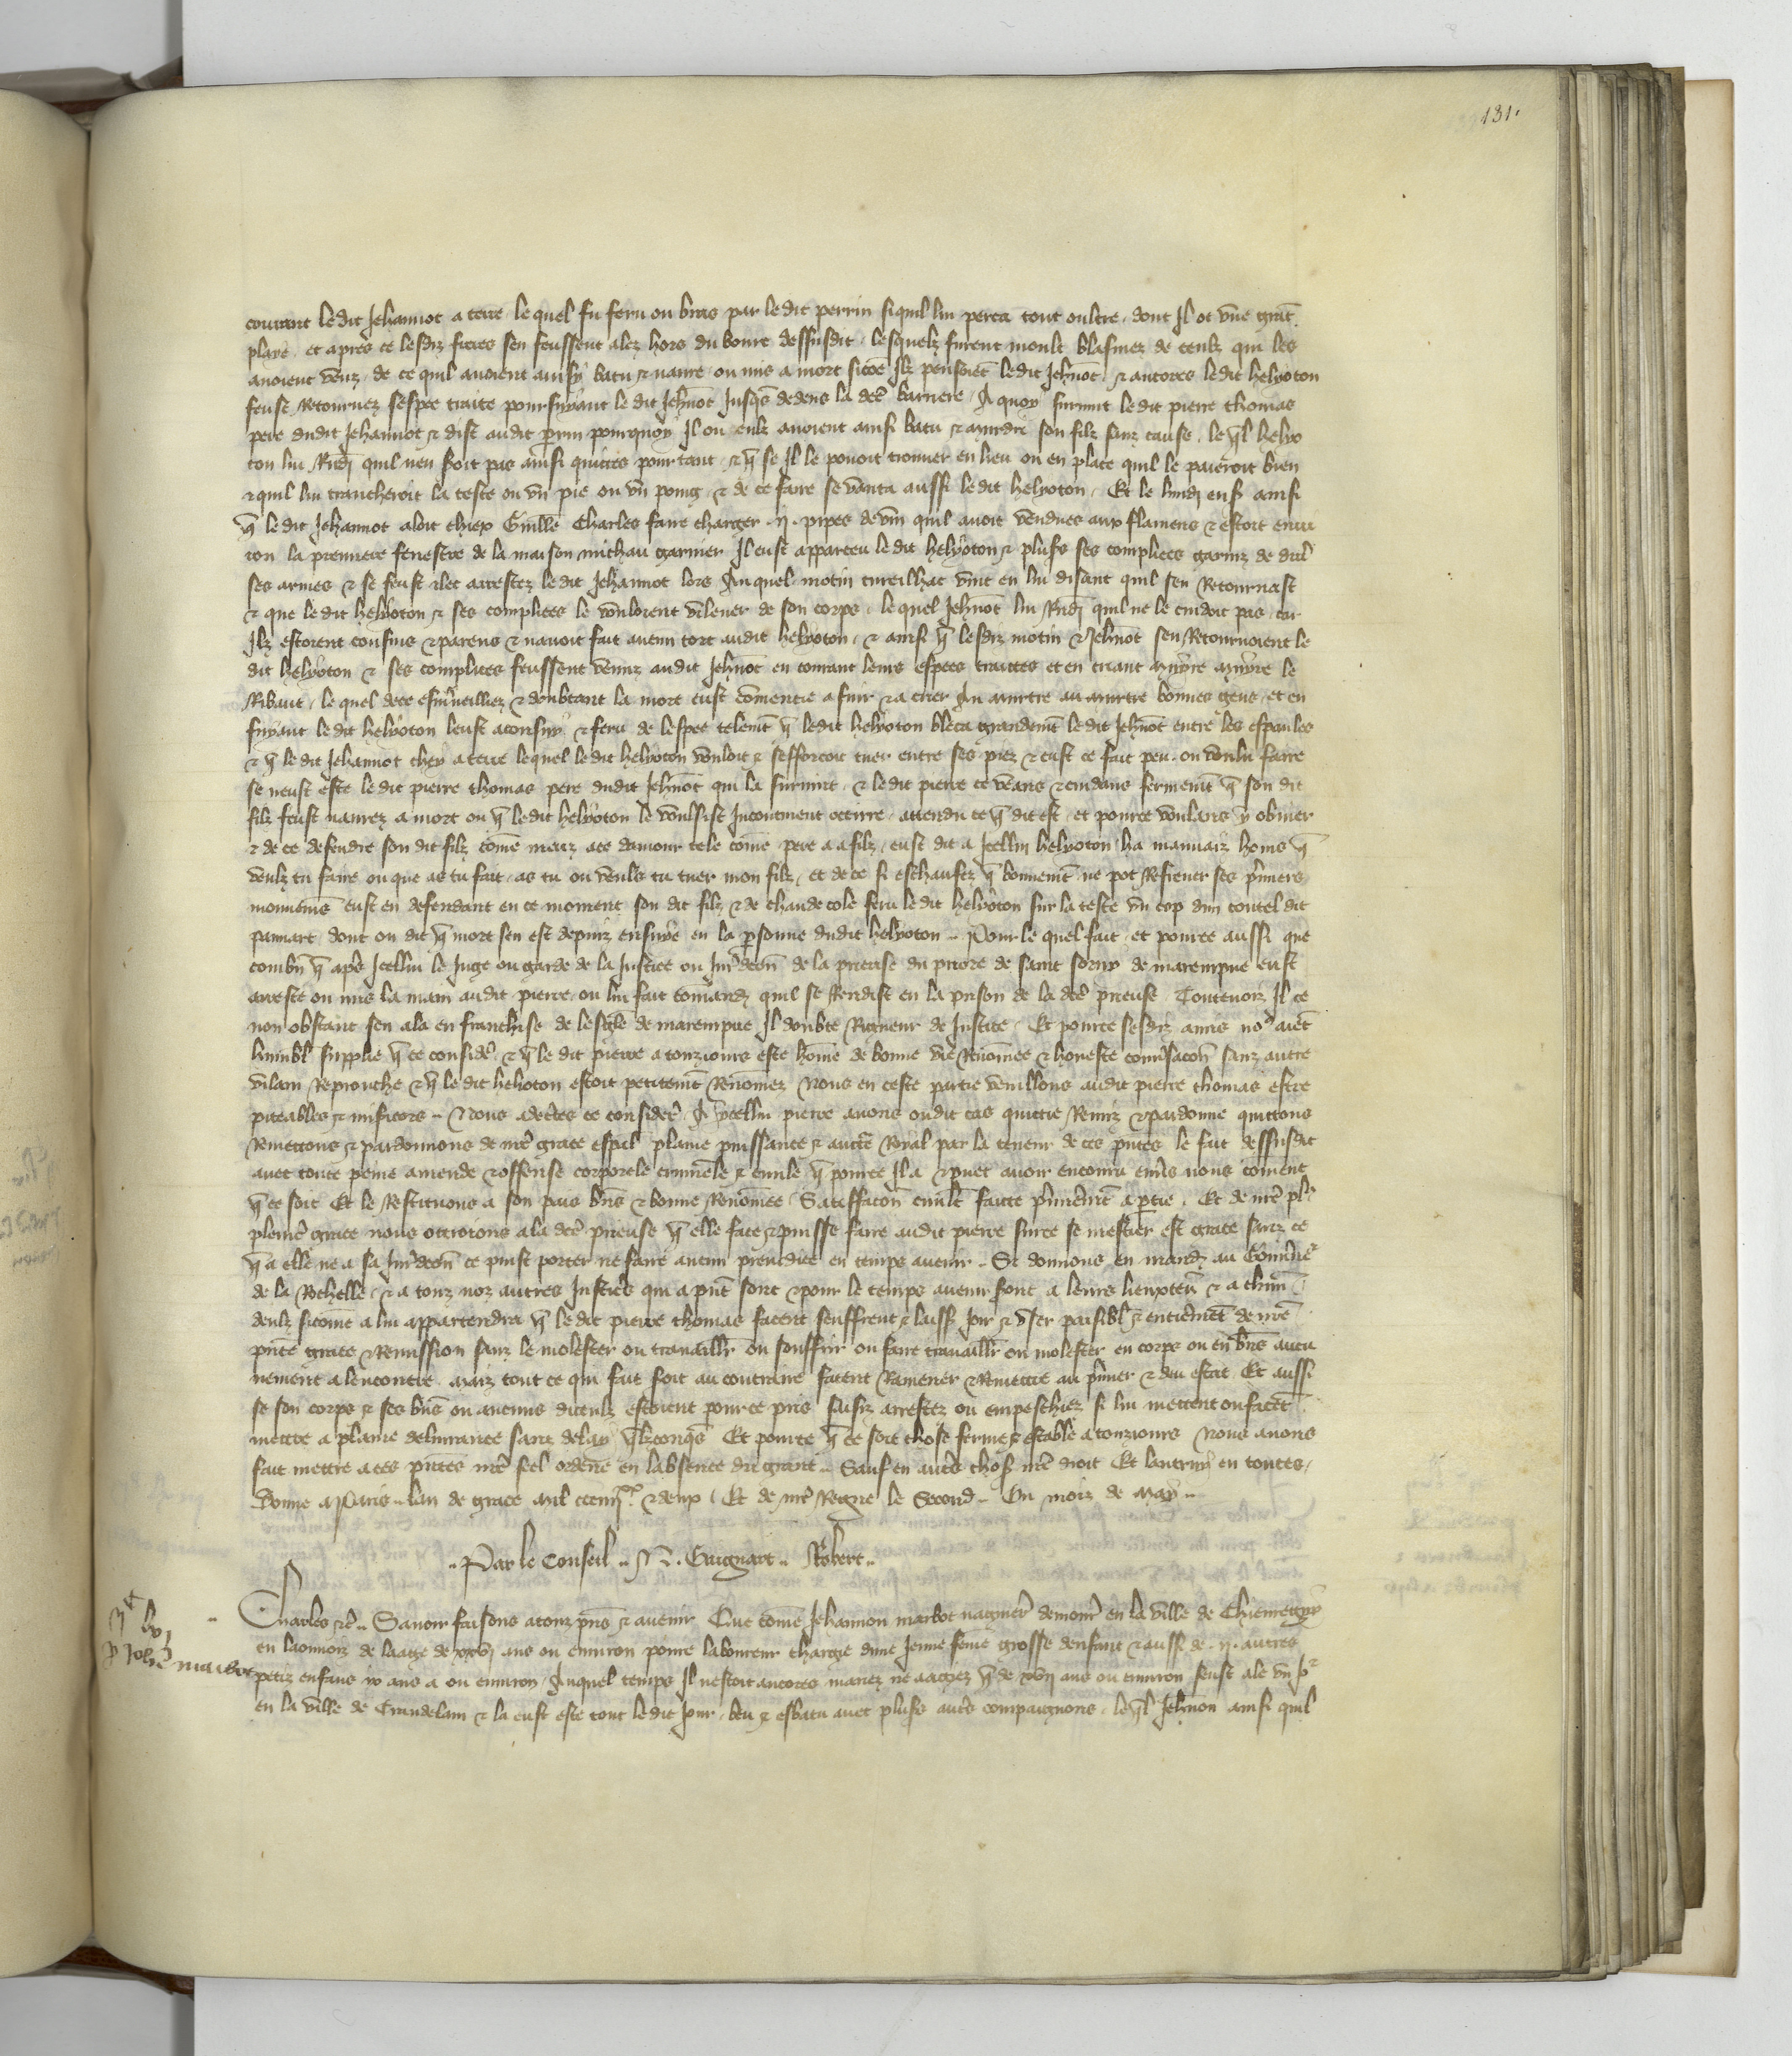 131.
couvrant ledit Jehannot a terre lequel fu feru ou bras par ledit perrin si quil lui perca tout oultre dont Il ot une grāt
plaie et apres ce lesdiz freres sen feussent alez hors du bourc dessusdit lesquelz furent moult blasmez de ceulz qui les
avoient veuz de ce quil avoient ainsy batu & navre ou mis a mort sicōe Ilz pensoiēt ledit Jehnōt & ancores ledit helyoton
feust Retournez sespee traite poursuyvant le dit Jehnōt Jusqs dedens la dcē barriere A quoy survint le dit pierre thomas
pere dudit Jehannot & dist audit perrin pourquoy Il ou eulz avoient ainsi batu & murdri son filz sanz cause leql helyo
ton lui Rndi quil nen seroit pas ainsi quittes pour tant & q se Il le povoit trouver en lieu ou en place quil le paieroit bien
& quil lui trancheroit la teste ou un pie ou un poing & de ce faire se vanta aussi ledit helyoton Et le lundi ensuiv ainsi
q le dit Jehannot aloit chiex Guillē Charles faire charger .ij. pipes de vin quil avoit vendues aux flamens & estoit envi
ron la premiere fenestre de la maison michau garnier Il eust apparceu ledit helyoton & plusrs ses complices garniz de divs
ses armes & se feust ilec arrestez ledit Jehannot lors Auquel motin tureilhac vint en lui disant quil sen Retournast
& que ledit helyoton & ses complices le vouloient vilener de son corps lequel Jehnōt lui Rndi quil ne le cuidoit pas car
Ilz estoient cousins & parens & navoit fait aucun tort audit helyoton & ainsi q lesdiz motin & Jehnōt sen Retournoient le
dit helyoton & ses complices feussent venuz audit Jehnōt en courant leurs espees traittes et en criant a mort a mort le
Ribaut lequel de ce esmveilliez & doubtant la mort eust cōmencie a fuir & a crier Au murtre au murtre bonnes gens et en
fuyant ledit helyoton leust aconsuy & feru de lespee telemēt q ledit helyoton bleca grandemēt ledit Jehnōt entre les espaules
& q ledit Jehannot chey a terre lequel ledit helyoton vouloit & sefforcoit tuer entre ses piez & eust ce fait peu ou voulu faire
se neust este ledit pierre thomas pere dudit Jehnōt qui la survint & le dit pierre ce veans & cuidans fermemēt q son dit
filz feust navrez a mort ou q ledit helyoton le voulsist Incontinent occirre attendu ce q dit est et pource voulans y obvier
& de ce defendre son dit filz cōme meuz a ce damour tele cōme pere a a filz eust dit a Jcellui helyoton ha mauvaiz homs q
veulz tu faire ou que as tu fait as tu ou veulz tu tuer mon filz et de ce si eschaufez q bonnemēt ne pot Refrener ses pmiers
mouvemēs eust en defendant en ce moment son dit filz & de chaude cole feru ledit helyoton sur la teste un cop dun coutel dit
pannart dont on dit q mort sen est depuiz ensuye en la psonne dudit helyoton Pour le quel fait et pource aussi que
combn q aps Jcellui le Juge ou garde de la Justice ou Juridcōn de la prieuse du priore de saint sorny de marempne eust
arreste ou mis la main audit pierre ou lui fait cōmandr quil se Rendist en la prison de la dcē prieuse Toutevoiz Il ce
non obstant sen ala en franchise de leglē de marempne Il doubte Rigueur de Justice Et pource sesdiz amis nōs aiēt
humblt supplie q ce consider & q le dit pierre a touzjours este hōme de bonne vie Renōmee & honeste convsacōn sanz autre
vilain Reprouche & q ledit helyoton estoit petitemēt Renōmez Nous en ceste partie veuillons audit pierre thomas estre
piteables & misicors Nous adecertes ce considere A ycellui pierre avons oudit cas quittie Remiz & pardonne quittons
Remettons & pardonnons de nrē grace espal plaine puissance & auctē Royal par la teneur de ces pntes le fait dessusdit
avec toute peine amende & offense corporele criminele & civile q pource Il a & puet avoir encouru envs nous cōment
q ce soit Et le Restituons a son pais bns & bonne Renōmee Satisfacōn civilt faitte pmieremēt a ptie Et de nrē pls
plenie grace nous octroions a la dcē prieuse q elle face & puisse faire audit pierre surce se mestier est grace sanz ce
q a elle ne a sa Juridcōn ce puist porter ne faire aucun preiudice en temps avenir Si donnons en mandt au Gouvneur
de la Rochelle & a touz noz autres Justiers qui a pnt sont & pour le temps avenir sont a leurs lieuxten & a chun
deulz sicōme a lui appartendra q le dit pierre thomas facent seuffrent & laiss Joir & User paisiblt & entieremēt de nrē
pnte grace & Remission sanz le molester ou travaillr ou souffrir ou faire travaillr ou molester en corps ou en bns aucu
nement a lencontre maiz tout ce qui fait soit au contraire facent Ramener & Remettre au pmier & deu estat Et aussi
se son corps & ses bns ou aucuns diceulz estoient pource pris saisiz arrestez ou empeschiez si lui mettent ou facēt
mettre a plaine delivrance sanz delay qlzconqs Et pource q ce soit chose ferme & estable a touzjours Nous avons
fait mettre a ces pntes nrē seel ordene en labsence du grant Sauf en autrs chosess nrē droit Et lautruy en toutes
Donne a Paris lan de grace mil ccciiiixx & deux Et de nrē Regne le Second Ou mois de May
Par le Conseil .. N. Guignart .. Robert ..
Charles &c Savoir faisons a touz pns & avenir Que cōme Jehannon marbot nagueres demour en la ville de Chievregny
en laonnoiz de laage de xxvj ans ou environ povre laboureur chargie dune Jeune fēme grosse denfant & aussi de .ij. autres
petiz enfans ix ans a ou environ Auquel temps Il nestoit ancores mariez ne aagiez q de xvij ans ou environ feust ale un Jor
en la ville de Crandelain & la eust este tout le dit Jour beu & esbatu avec plusrs autrs compaignons leql Jehnon ainsi quil
marbot